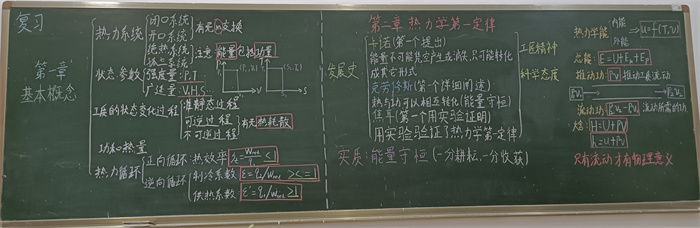 复习
第一章
基本概念
热力系统
闭口系统
开口系统
绝热系统
孤立系统
有无m交换
注意:能量包括功量
状态参数
强度量:P.T...
广延量:V.H.S...
工质的状态变化过程
准静态过程
可逆过程
不可逆过程
有无热耗散
功和热量
热力循环
正向循环:热效率
<1
逆向循环
制冷系数
供热系数
第二章 热力学第一定律
发展史
卡诺(第一个提出)
能量不可能凭空产生或消失,只可能转化
成其它形式
克劳修斯(第一个详细阐述)
热与功可以相互转化(能量守恒)
焦耳(第一个用实验证明)
用实验验证了热力学第一定律
工匠精神
科学态度
实质:能量守恒(一分耕耘,一分收获)
热力学能
内能
外能
U=f(T,v)
总能 E=U+Ek+Ep
推动功 PV 推动工质流动
P1V1
P2V2
流动功 P2V2-P1V1 流动所需的功
焓:H=U+PV
h=u+Pv
只有流动才有物理意义